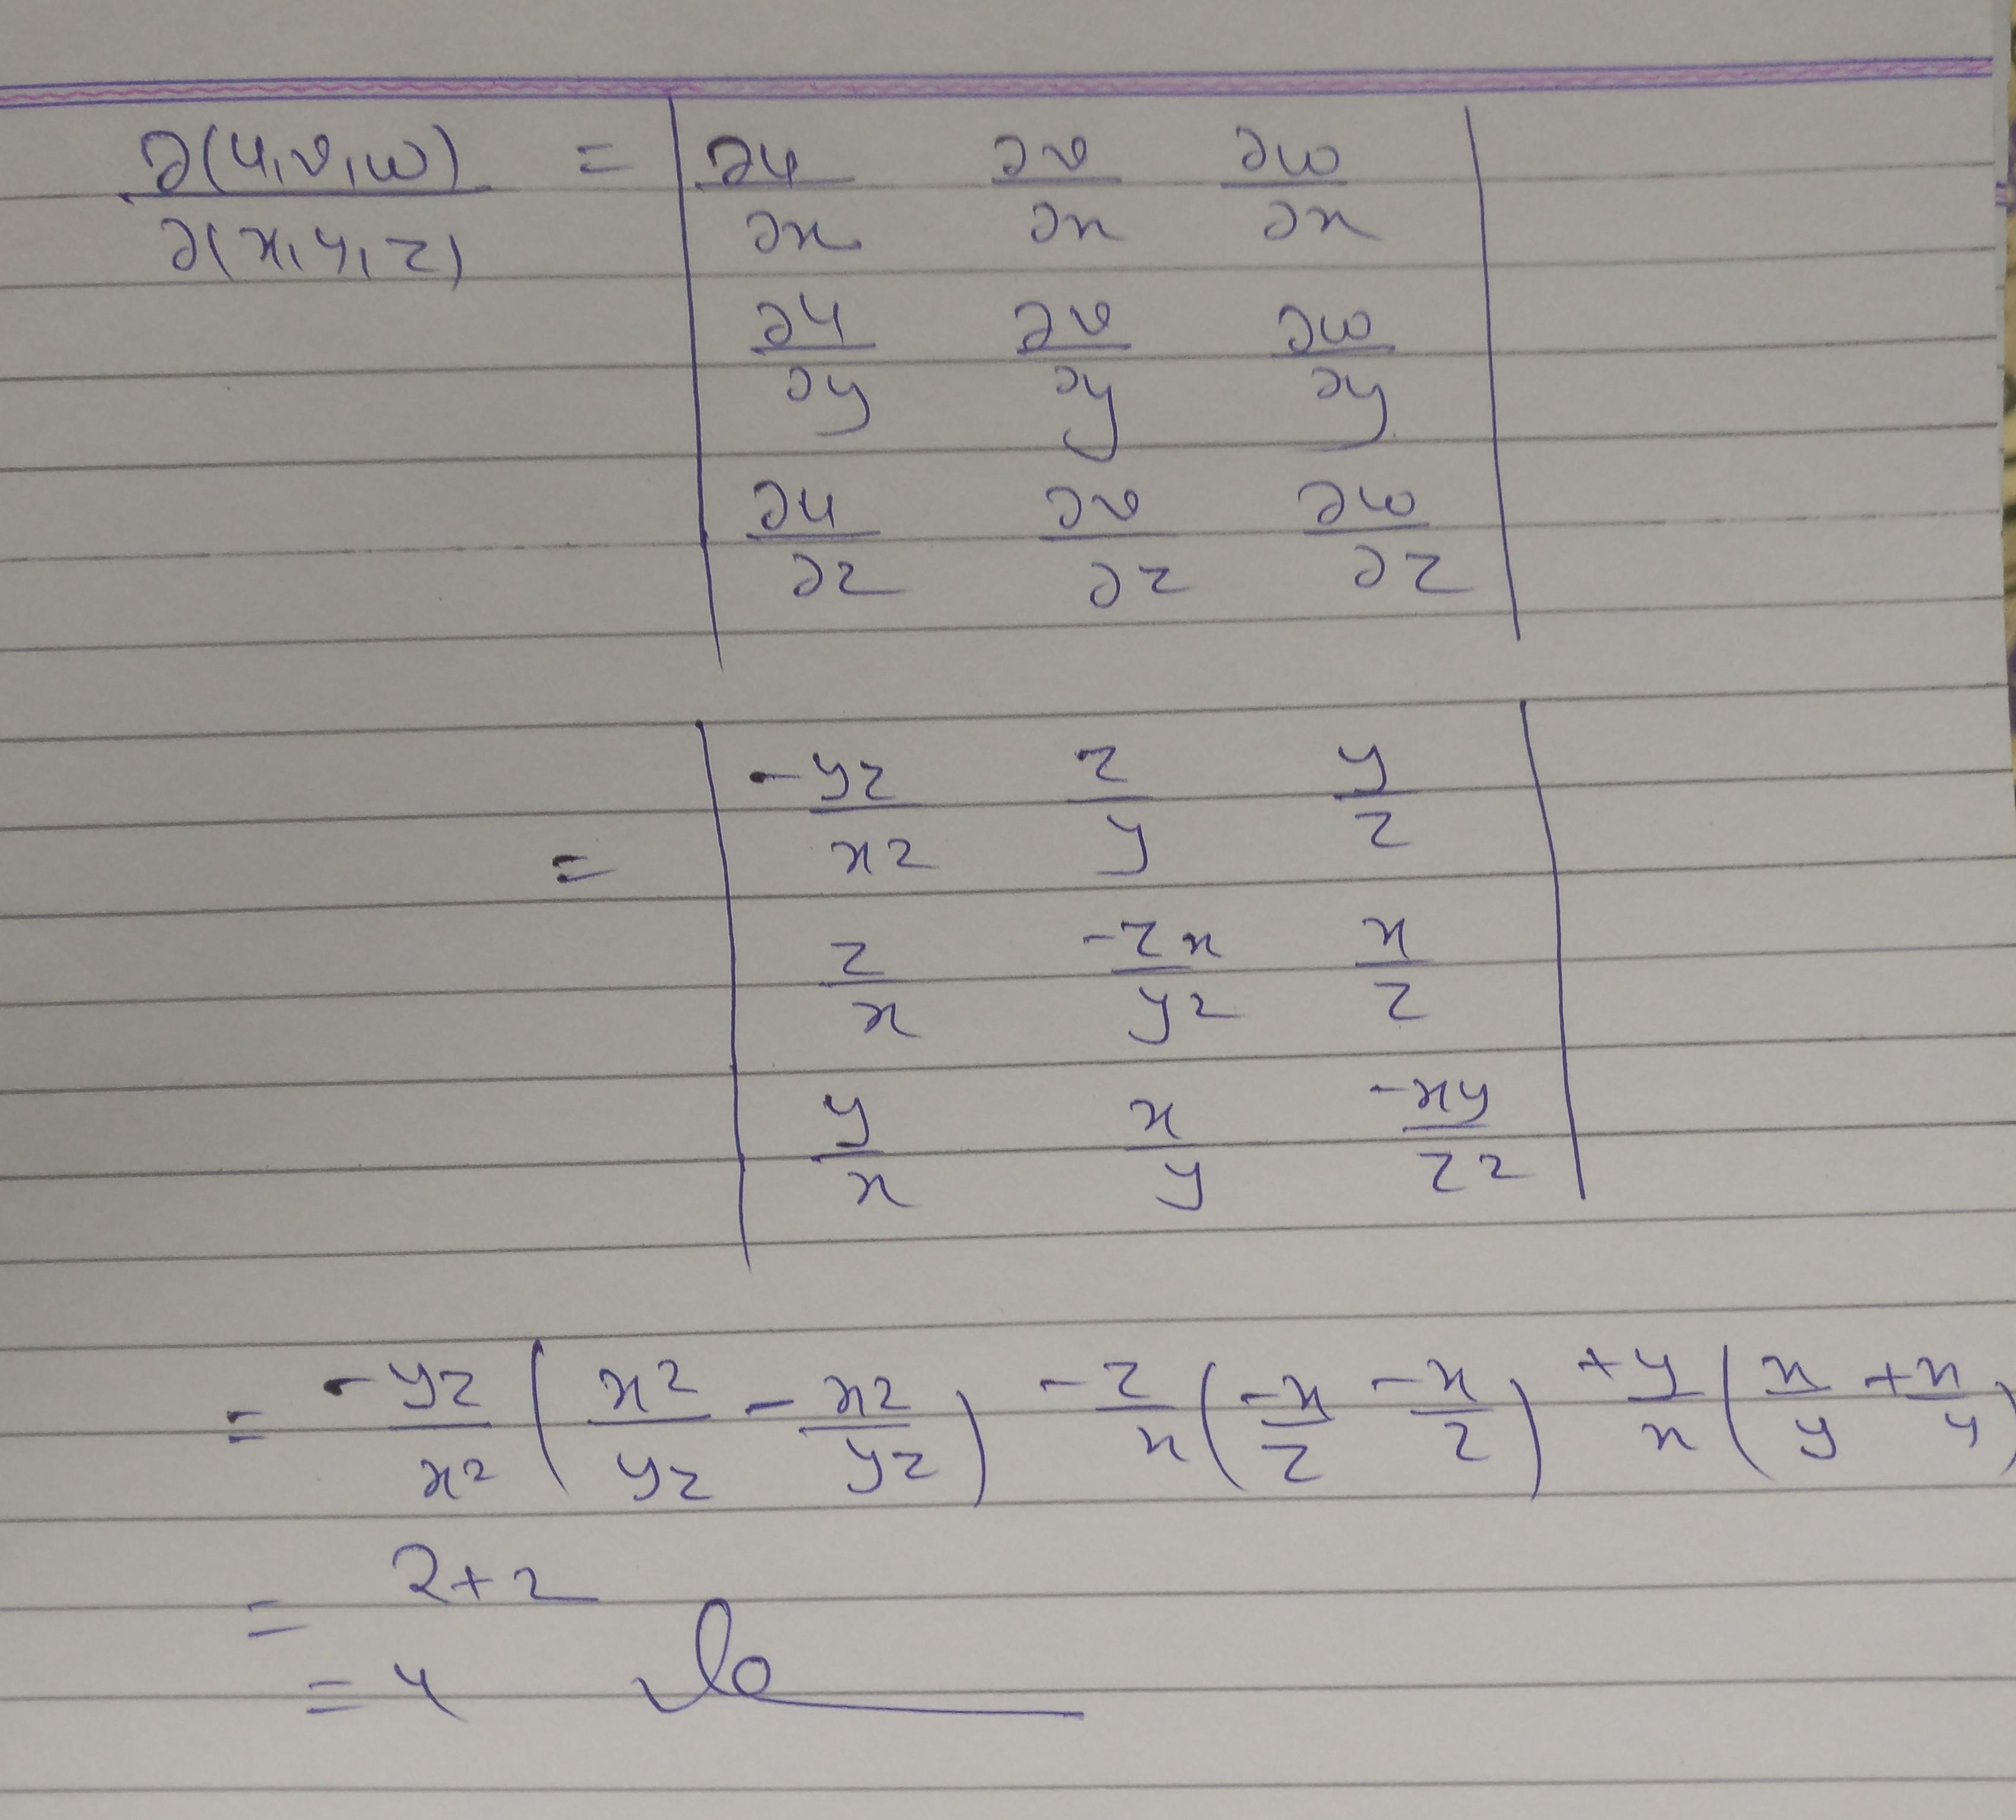 ∂(u,v,w) / ∂(x,y,z) = | ∂u/∂x ∂v/∂x ∂w/∂x |
| ∂u/∂y ∂v/∂y ∂w/∂y |
| ∂u/∂z ∂v/∂z ∂w/∂z |
= | -yz/x² z/y y/z |
| z/x -zx/y² x/z |
| y/x x/y -xy/z² |
= -yz/x² (x²/yz - x²/yz) - z/x (-x/z - x/z) + y/x (x/y + x/y)
= 2+2
= 4